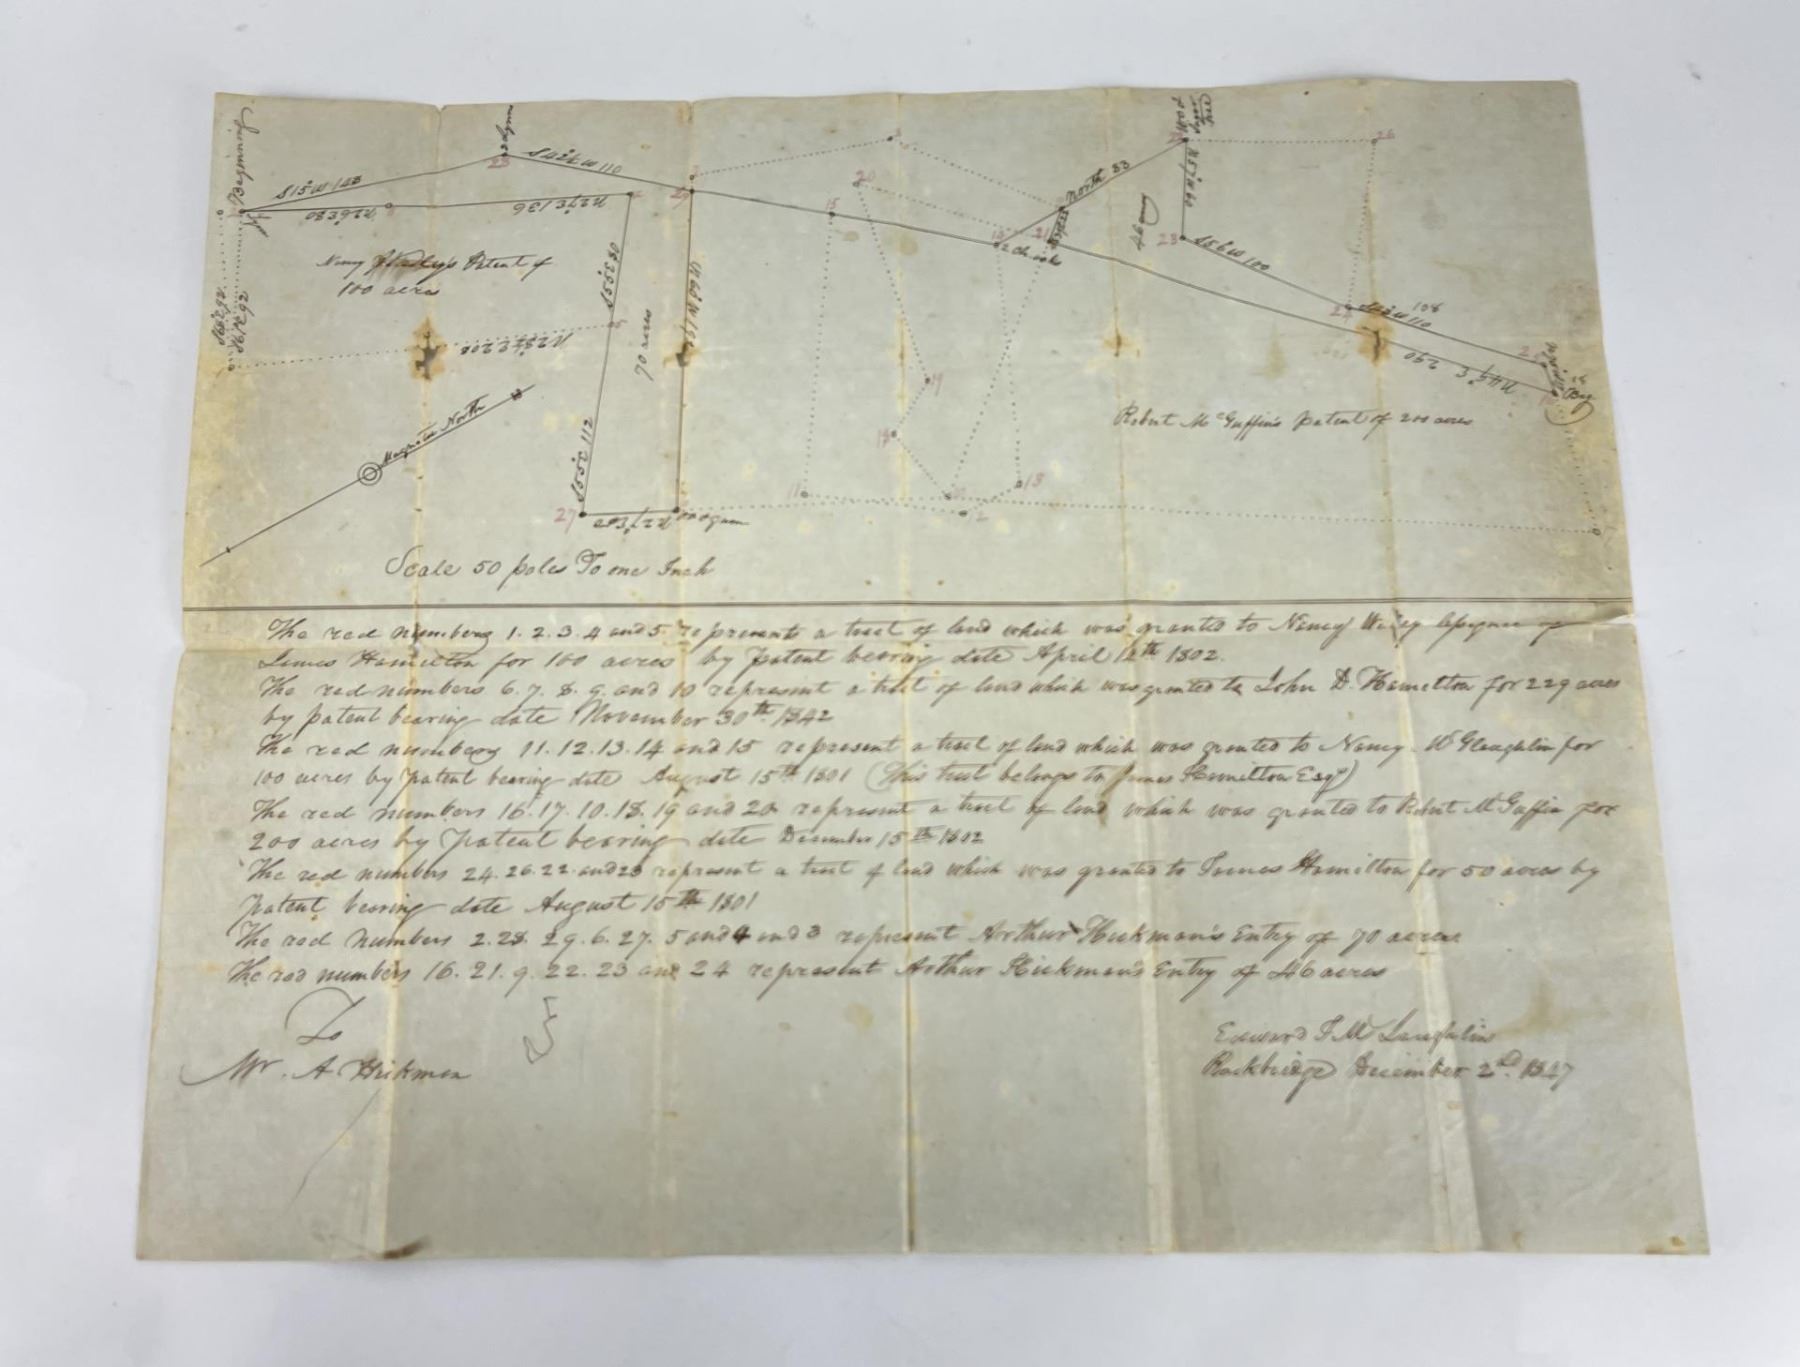 Beginning
S15°W 148
25
S42½W 110
N26E80
N27E136
S55E80
Nancy Patent of
100 acres
70 acres
N69W179
S55E112
N28½E208
Magnetic North
27
Scale 50 poles To one Inch
15
20
3
19
11
18
21
North 83
26
46 acres
N57W60
23
S56W100
S43W110
108
N45½E 290
Beg
Robert McGuffin's patent of 200 acres
The red numbers 1. 2. 3. 4 and 5. represents a tract of land which was granted to Nancy Wiley of
James Hamilton for 100 acres by patent bearing date April 12th 1802.
The red numbers 6. 7. 8. 9. and 10 represent a tract of land which was granted to John D. Hamelton for 229 acres
by patent bearing date November 30th 1842
The red numbers 11. 12. 13. 14 and 15 represent a tract of land which was granted to Nancy McGlaughlin for
100 acres by patent bearing date August 15th 1801 (This tract belongs to James Hamilton Esqr)
The red numbers 16. 17. 10. 18. 19 and 20 represent a tract of land which was granted to Robert McGuffin for
200 acres by patent bearing date December 15th 1802
The red numbers 24. 26. 22. and 23 represent a tract of land which was granted to James Hamilton for 50 acres by
patent bearing date August 15th 1801
The red numbers 2. 28. 29. 6. 27. 5 and 4 and 3 represent Arthur Hickman's Entry of 70 acres
The red numbers 16. 21. 9. 22. 23 and 24 represent Arthur Hickman's Entry of 46 acres
To
Mr. A Hickman
Edward J. McLaughlin
Rockbridge December 2d. 1847